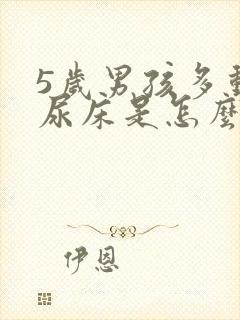 5歲男孩多動
尿床是怎麼
伊恩